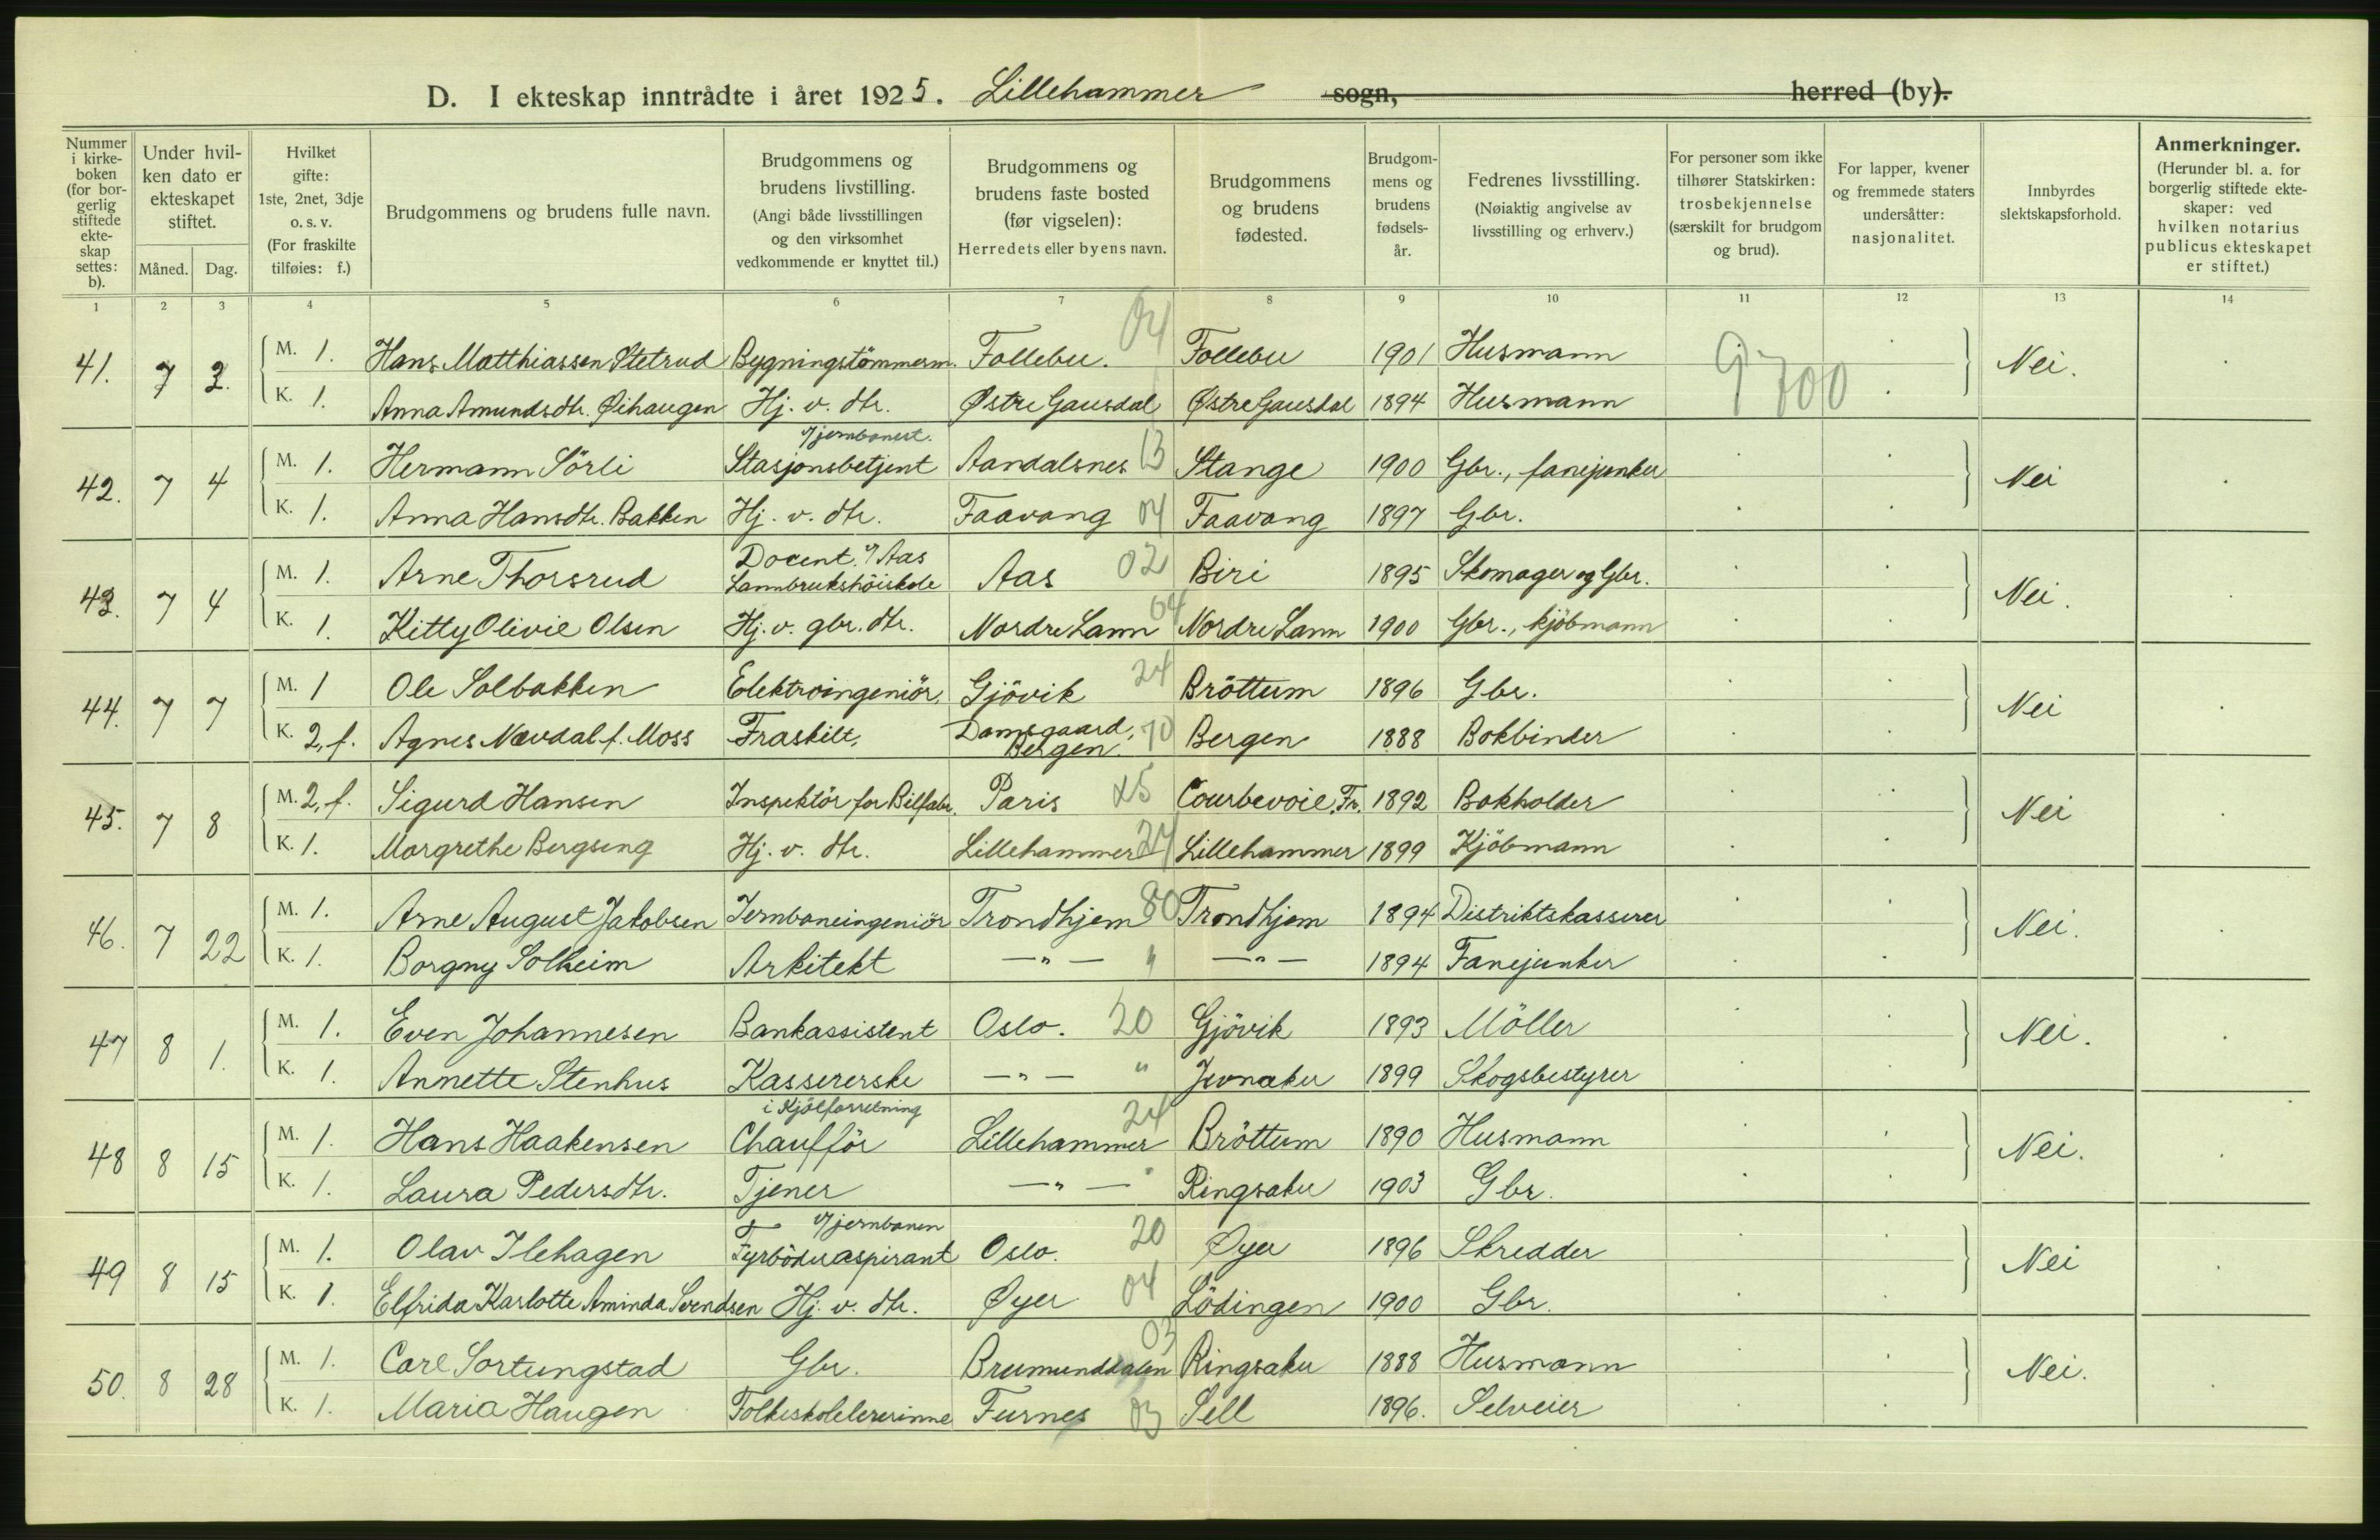 D. I ekteskap inntrådte i året 1925. Lillehammer sogn, herred (by).
Nummer i kirkeboken (for borgerlig stiftede ekteskap settes: b).
Under hvilken dato er ekteskapet stiftet.
Måned. Dag.
Hvilket gifte: 1ste, 2net, 3dje o. s. v. (For fraskilte tilføies: f.)
Brudgommens og brudens fulle navn.
Brudgommens og brudens livstilling. (Angi både livsstillingen og den virksomhet vedkommende er knyttet til.)
Brudgommens og brudens faste bosted (før vigselen): Herredets eller byens navn.
Brudgommens og brudens fødested.
Brudgommens og brudens fødselsår.
Fedrenes livsstilling. (Nøiaktig angivelse av livsstilling og erhverv.)
For personer som ikke tilhører Statskirken: trosbekjennelse (særskilt for brudgom og brud).
For lapper, kvener og fremmede staters undersåtter: nasjonalitet.
Innbyrdes slektskapsforhold.
Anmerkninger. (Herunder bl. a. for borgerlig stiftede ekteskaper: ved hvilken notarius publicus ekteskapet er stiftet.)
1 2 3 4 5 6 7 8 9 10 11 12 13 14
41. 7 2. M. 1. Hans Matthiassen Stetrud Bygningstömmerm. Follebu. 04 Follebu 1901 Husmann Nei.
K. 1. Anna Amundsdtr. Øihaugen Hj. v. dtr. Østre Gausdal Østre Gausdal 1894 Husmann
9700
42. 7 4 M. 1. Hermann Sörli Stasjonsbetjent v/jernbanest. Aandalsnes 13 Stange 1900 Gbr., fanejunker Nei
K. 1. Anna Hansdtr. Bakken Hj. v. dtr. Faavang 04 Faavang 1897 Gbr.
43. 7 4 M. 1. Arne Thorsrud Docent v/Aas Lannbrukshöiskole Aas 02 Biri 1895 Skomager og Gbr. Nei.
K. 1. Kitty Olivie Olsen Hj. v. gbr. dtr. Nordre Lann 04 Nordre Lann 1900 Gbr., kjöbmann
44. 7 7 M. 1 Ole Solbakken Elektroingeniör, Gjövik 24 Bröttum 1896 Gbr. Nei
K. 2, f. Agnes Nævdal f. Moss Fraskilt, Damsgaard, Bergen. 70 Bergen 1888 Bokbinder
45. 7 8 M. 2, f. Sigurd Hansen Inspektör for Bilfabr. Paris x5 Courbevoie, Fr. 1892 Bokholder Nei
K. 1. Margrethe Bergseng Hj. v. dtr. Lillehammer 24 Lillehammer 1899 Kjöbmann
46. 7 22 M. 1. Arne August Jakobsen Jernbaneingeniör Trondhjem 80 Trondhjem 1894 Distriktskasserer Nei.
K. 1. Borgny Solheim Arkitekt — " — " — " — 1894 Fanejunker
47 8 1. M. 1. Even Johannesen Bankassistent Oslo. 20 Gjövik 1893 Möller Nei.
K. 1. Annette Stenhus Kassererske i Kjölforretning — " — " Jevnaker 1899 Skogsbestyrer
48 8 15 M. 1. Hans Haakensen Chafför Lillehammer 24 Bröttum 1890 Husmann Nei.
K. 1. Laura Pedersdtr. Tjener — " — " Ringsaker 1903 Gbr.
49 8 15 M. 1. Olav Ilehagen Fyrböderaspirant v/jernbanen Oslo. 20 Øyer 1896 Skredder Nei
K. 1. Elfrida Karlotte Aminda Svendsen Hj. v. dtr. Øyer 04 Lödingen 1900 Gbr.
50. 8 28 M. 1. Carl Sortungstad Gbr. Brumunddalen 03 Ringsaker 1888 Husmann Nei.
K. 1. Maria Haugen Folkeskolelererinne Furnes 03 Sell 1896. Selveier